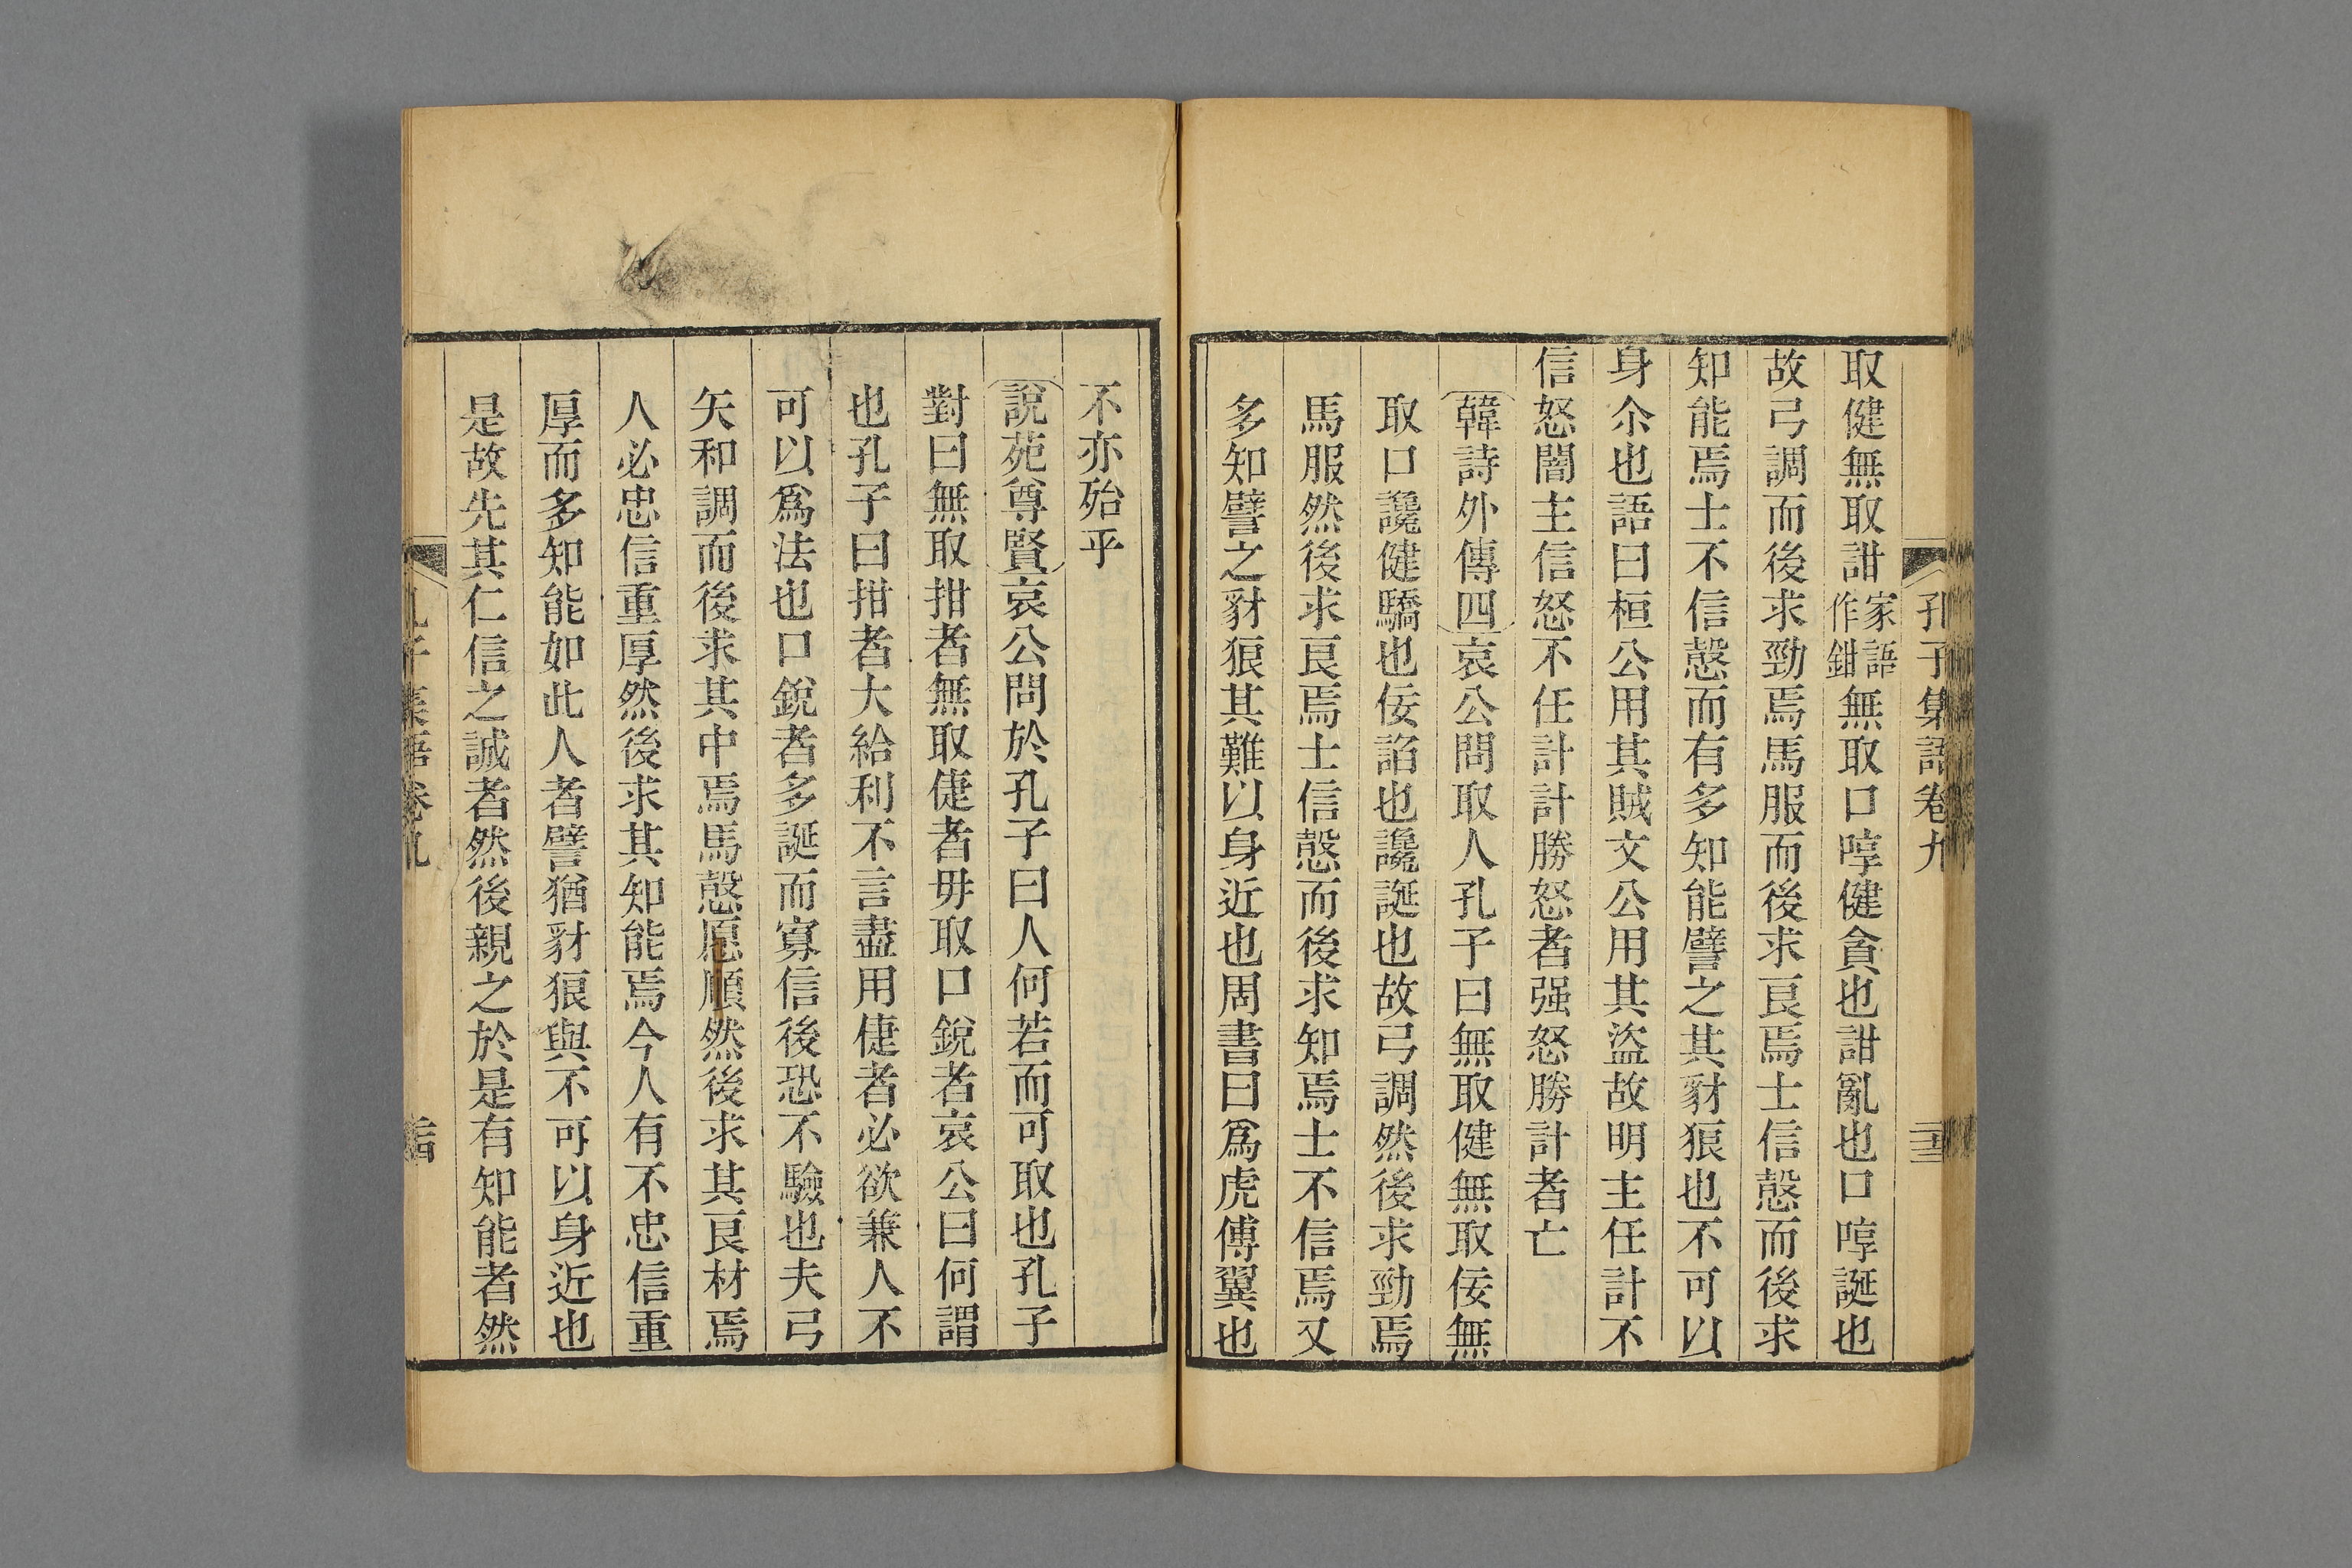 孔子集語卷九
取健無取詌家語作鉗無取口啍健貪也詌亂也口啍誕也
故弓調而後求勁焉馬服而後求良焉士信慤而後求
知能焉士不信慤而有多知能譬之其豺狼也不可以
身尒也語曰桓公用其賊文公用其盜故明主任計不
信怒闇主信怒不任計計勝怒者强怒勝計者亡
韓詩外傳四哀公問取人孔子曰無取健無取佞無
取口讒健驕也佞諂也讒誕也故弓調然後求勁焉
馬服然後求良焉士信慤而後求知焉士不信焉又
多知譬之豺狼其難以身近也周書曰爲虎傅翼也
不亦殆乎
說苑尊賢哀公問於孔子曰人何若而可取也孔子
對曰無取拑者無取健者毋取口銳者哀公曰何謂
也孔子曰拑者大給利不言盡用健者必欲兼人不
可以爲法也口銳者多誕而寡信後恐不驗也夫弓
矢和調而後求其中焉馬慤愿順然後求其良材焉
人必忠信重厚然後求其知能焉今人有不忠信重
厚而多知能如此人者譬猶豺狼與不可以身近也
是故先其仁信之誠者然後親之於是有知能者然
孔子集語卷九